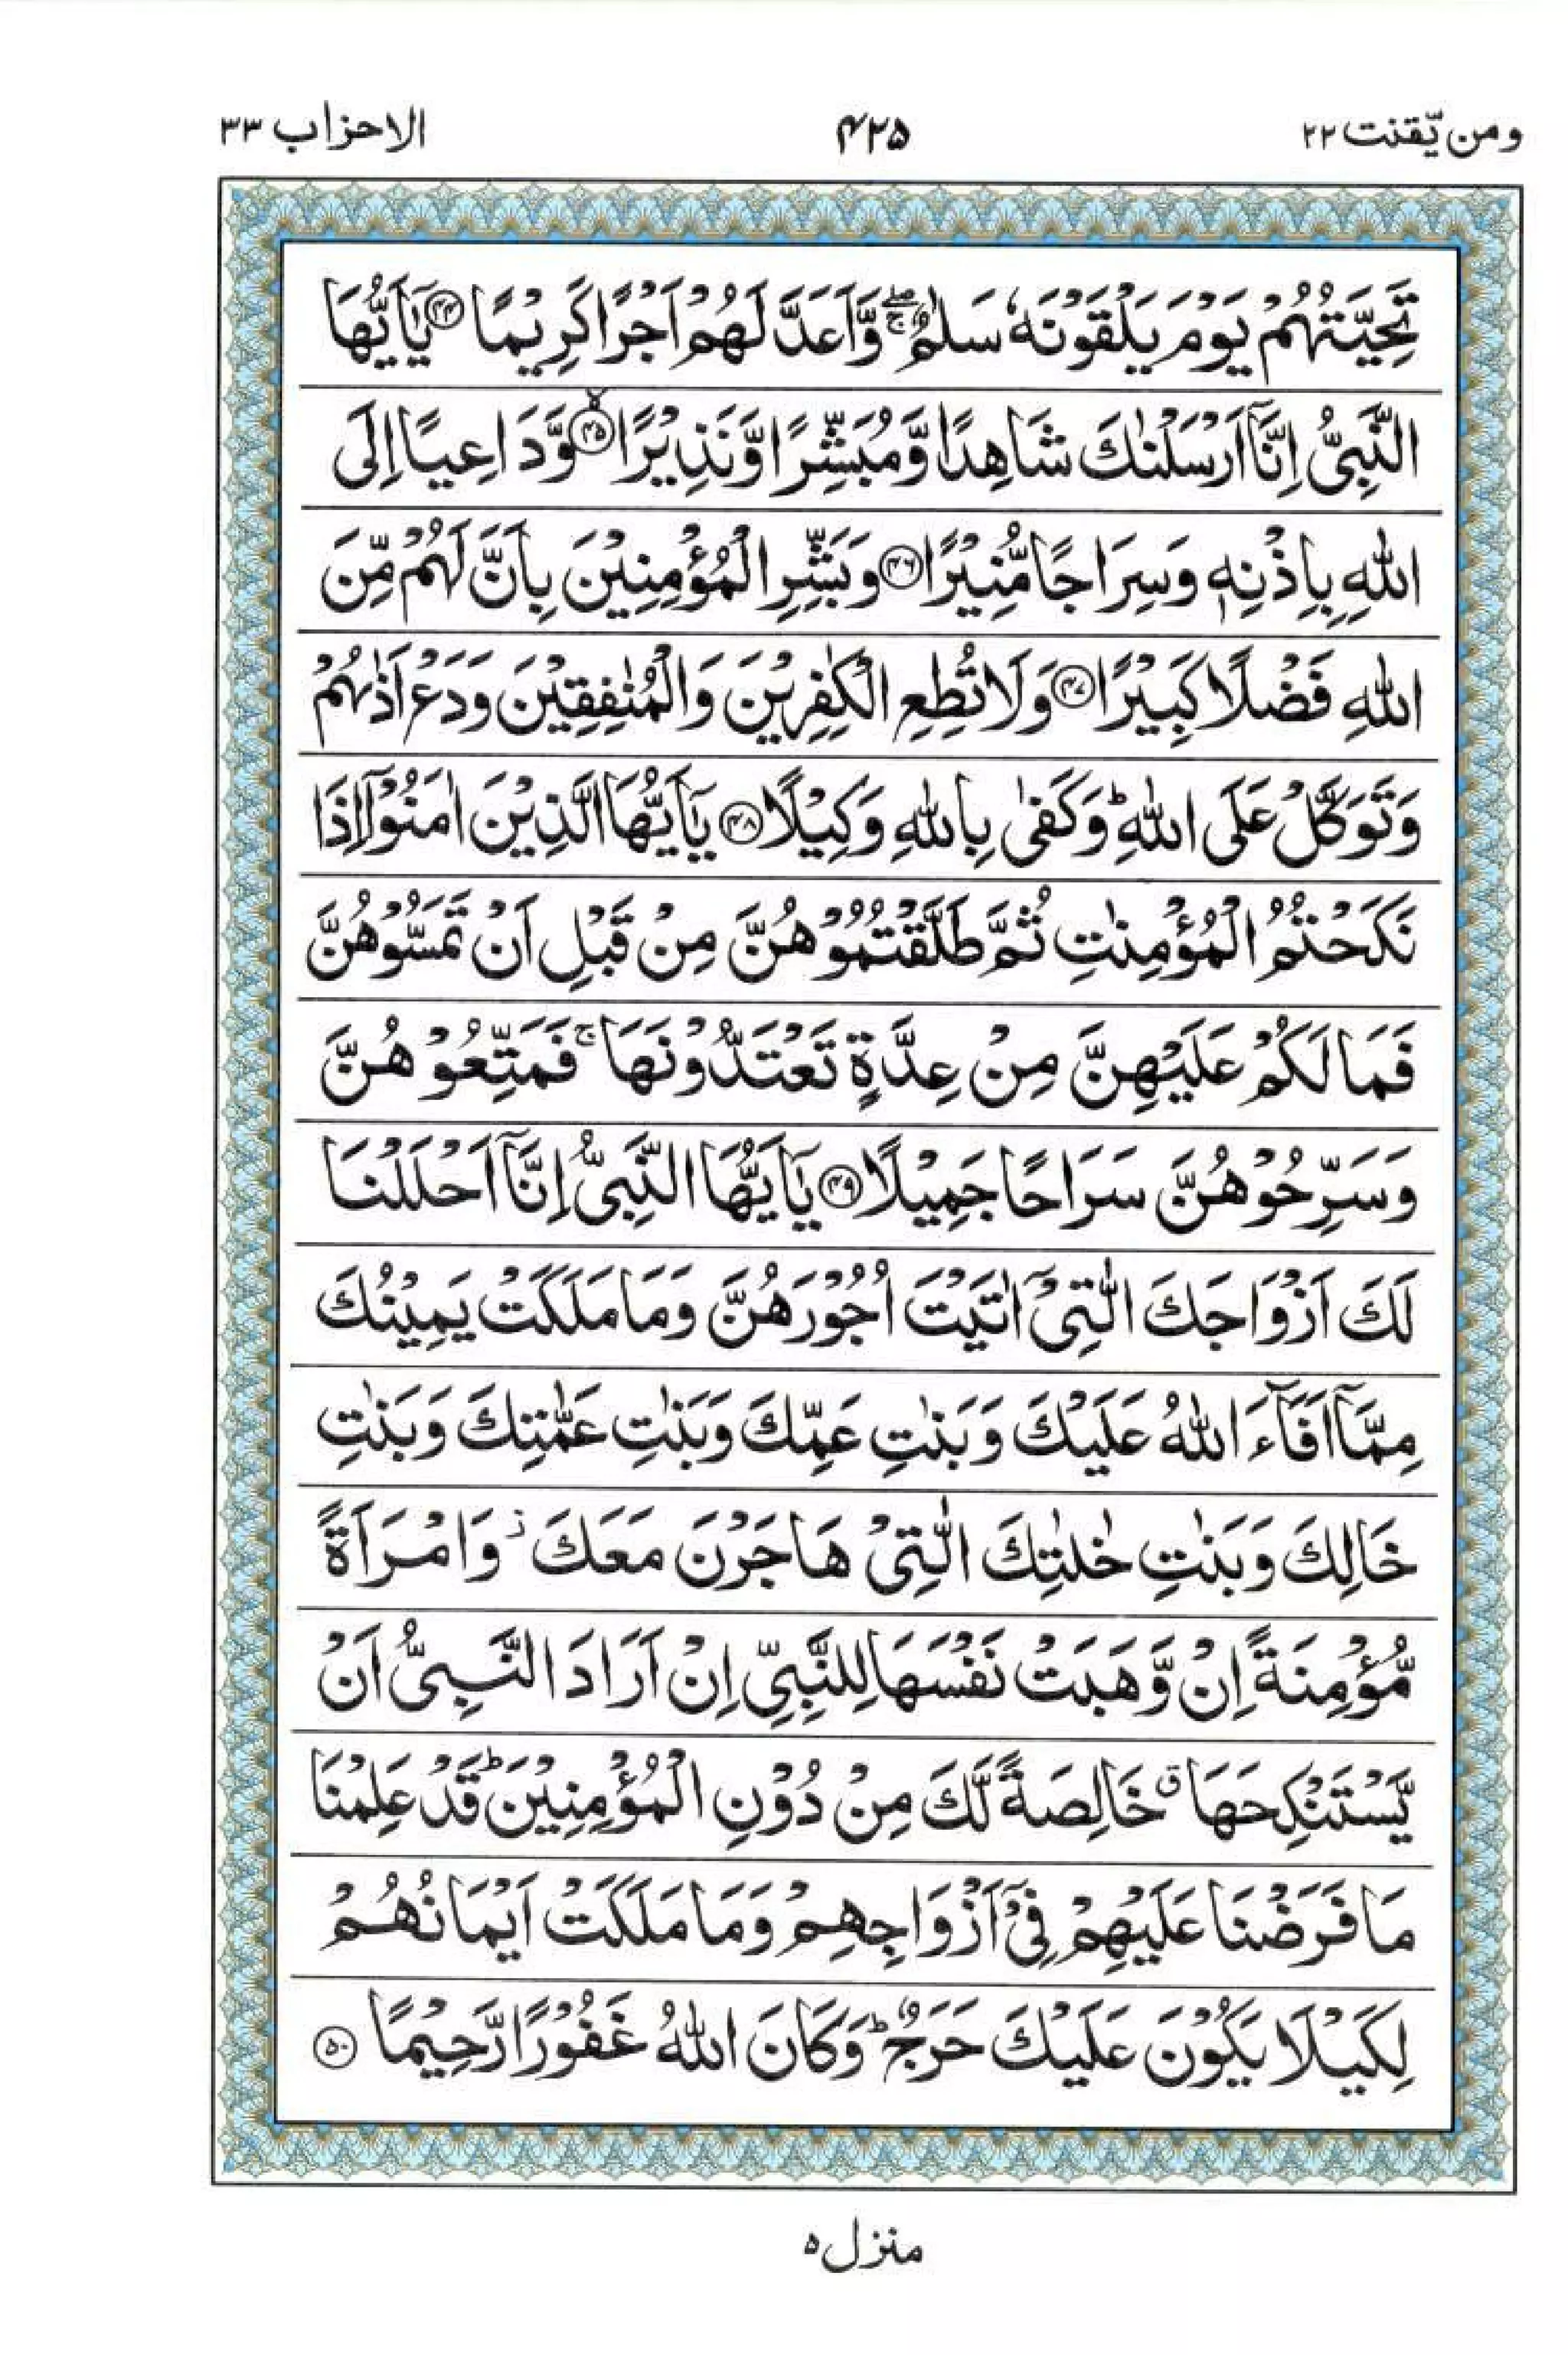 ومن يّقنت ٢٢
۴۲۵
الاحزاب ٣٣
تَحِيَّتُهُمْ يَوْمَ يَلْقَوْنَهٗ سَلٰمٌ ۖۚ وَّاَعَدَّ لَهُمْ اَجْرًا كَرِيْمًا ﴿۴۴﴾ يٰۤاَيُّهَا
النَّبِىُّ اِنَّاۤ اَرْسَلْنٰكَ شَاهِدًا وَّمُبَشِّرًا وَّنَذِيْرًا ﴿۴۵﴾ۙ وَّدَاعِيًا اِلَى
اللّٰهِ بِاِذْنِهٖ وَسِرَاجًا مُّنِيْرًا ﴿۴۶﴾ وَبَشِّرِ الْمُؤْمِنِيْنَ بِاَنَّ لَهُمْ مِّنَ
اللّٰهِ فَضْلًا كَبِيْرًا ﴿۴۷﴾ وَلَا تُطِعِ الْكٰفِرِيْنَ وَالْمُنٰفِقِيْنَ وَدَعْ اَذٰىهُمْ
وَتَوَكَّلْ عَلَى اللّٰهِ ؕ وَكَفٰى بِاللّٰهِ وَكِيْلًا ﴿۴۸﴾ يٰۤاَيُّهَا الَّذِيْنَ اٰمَنُوْۤا اِذَا
نَكَحْتُمُ الْمُؤْمِنٰتِ ثُمَّ طَلَّقْتُمُوْهُنَّ مِنْ قَبْلِ اَنْ تَمَسُّوْهُنَّ
فَمَا لَكُمْ عَلَيْهِنَّ مِنْ عِدَّةٍ تَعْتَدُّوْنَهَا ۚ فَمَتِّعُوْهُنَّ
وَسَرِّحُوْهُنَّ سَرَاحًا جَمِيْلًا ﴿۴۹﴾ يٰۤاَيُّهَا النَّبِىُّ اِنَّاۤ اَحْلَلْنَا
لَكَ اَزْوَاجَكَ الّٰتِىْۤ اٰتَيْتَ اُجُوْرَهُنَّ وَمَا مَلَكَتْ يَمِيْنُكَ
مِمَّاۤ اَفَآءَ اللّٰهُ عَلَيْكَ وَبَنٰتِ عَمِّكَ وَبَنٰتِ عَمّٰتِكَ وَبَنٰتِ
خَالِكَ وَبَنٰتِ خٰلٰتِكَ الّٰتِىْ هَاجَرْنَ مَعَكَ ز وَامْرَاَةً
مُّؤْمِنَةً اِنْ وَّهَبَتْ نَفْسَهَا لِلنَّبِىِّ اِنْ اَرَادَ النَّبِىُّ اَنْ
يَّسْتَنْكِحَهَا ق خَالِصَةً لَّكَ مِنْ دُوْنِ الْمُؤْمِنِيْنَ ؕ قَدْ عَلِمْنَا
مَا فَرَضْنَا عَلَيْهِمْ فِىْۤ اَزْوَاجِهِمْ وَمَا مَلَكَتْ اَيْمَانُهُمْ
لِكَيْلَا يَكُوْنَ عَلَيْكَ حَرَجٌ ؕ وَكَانَ اللّٰهُ غَفُوْرًا رَّحِيْمًا ﴿۵۰﴾
منزل ۵